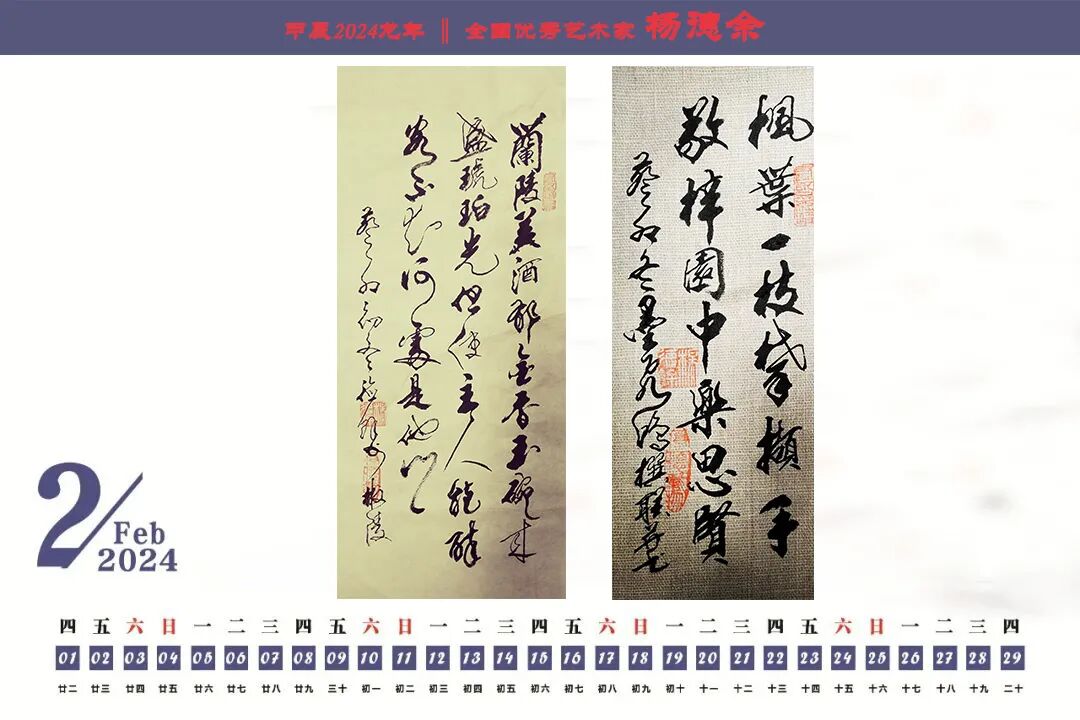 甲辰2024龙年 ‖ 全国优秀艺术家 杨德余
蘭陵美酒郁金香玉碗来
盛琥珀光但使主人能醉
客不知何處是他鄉
癸卯初冬
枫葉一枝掌擷手
敬梓園中樂思賢
癸卯冬
2/Feb
2024
四 五 六 日 一 二 三 四 五 六 日 一 二 三 四 五 六 日 一 二 三 四 五 六 日 一 二 三 四
01 02 03 04 05 06 07 08 09 10 11 12 13 14 15 16 17 18 19 20 21 22 23 24 25 26 27 28 29
廿二 廿三 廿四 廿五 廿六 廿七 廿八 廿九 三十 初一 初二 初三 初四 初五 初六 初七 初八 初九 初十 十一 十二 十三 十四 十五 十六 十七 十八 十九 二十